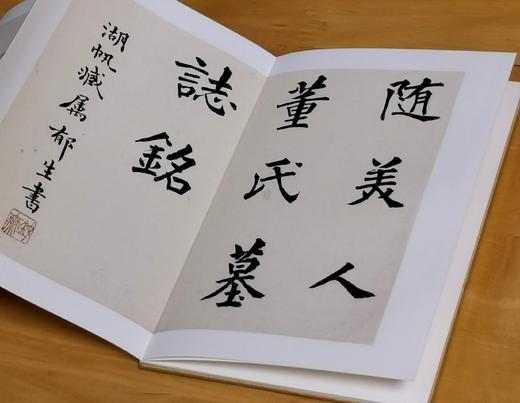 随美人
董氏墓
誌銘
湖帆藏属郁生書